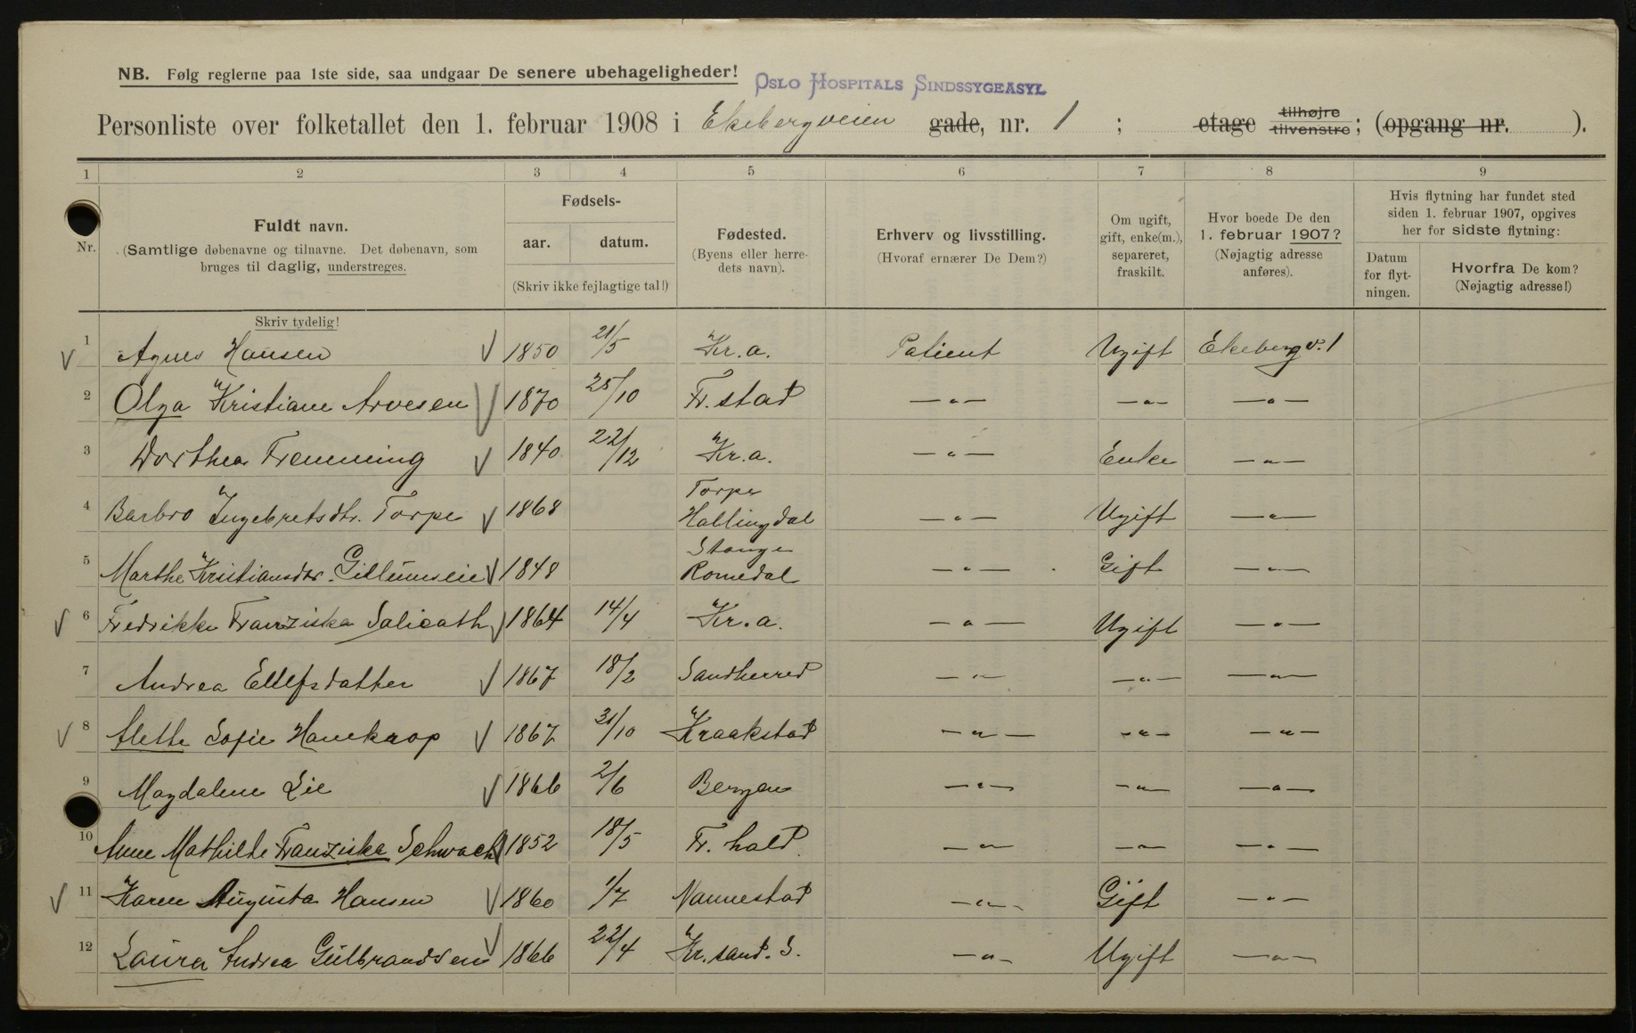 NB. Følg reglerne paa 1ste side, saa undgaar De senere ubehageligheder!
OSLO HOSPITALS SINDSSYGEASYL
Personliste over folketallet den 1. februar 1908 i Ekebergveien gade, nr. 1 ; etage tilhøjre tilvenstre; (opgang nr. ).
1 2 3 4 5 6 7 8 9
Nr.
Fuldt navn.
(Samtlige døbenavne og tilnavne. Det døbenavn, som
bruges til daglig, understreges.
Skriv tydelig!
Fødsels-
aar. datum.
(Skriv ikke fejlagtige tal!)
Fødested.
(Byens eller herre-
dets navn).
Erhverv og livsstilling.
(Hvoraf ernærer De Dem?)
Om ugift,
gift, enke(m.),
separeret,
fraskilt.
Hvor boede De den
1. februar 1907?
(Nøjagtig adresse
anføres).
Hvis flytning har fundet sted
siden 1. februar 1907, opgives
her for sidste flytning:
Datum
for flyt-
ningen.
Hvorfra De kom?
(Nøjagtig adresse!)
1 Agnes Hansen 1850 21/5 Kr.a. Patient Ugift Ekebergv. 1
2 Olga Kristiane Arvesen 1870 25/10 Fr.stad —"— —"— —"—
3 Dorthea Fremming 1840 22/12 Kr.a. —"— Enke —"—
4 Barbro Ingebretsdtr. Torpe 1868 Torpe
Hallingdal —"— Ugift —"—
5 Marthe Kristiansdtr. 1848 Stange
Romedal —"— Gift —"—
6 Fredrikke Franziska Salicath 1864 14/4 Kr.a. —"— Ugift —"—
7 Andrea Ellefsdatter 1867 18/2 Sandherred —"— —"— —"—
8 Alette Sofie 1867 31/10 Kraakstad —"— —"— —"—
9 Magdalene Lie 1866 2/6 Bergen —"— —"— —"—
10 Anne Mathilde Franziska Schwach 1852 18/5 Fr.hald. —"— —"— —"—
11 Karen Augusta Hansen 1860 1/7 Nannestad —"— Gift —"—
12 Laura Andrea Gulbrandsen 1866 22/4 Kr.sand. S. —"— Ugift —"—